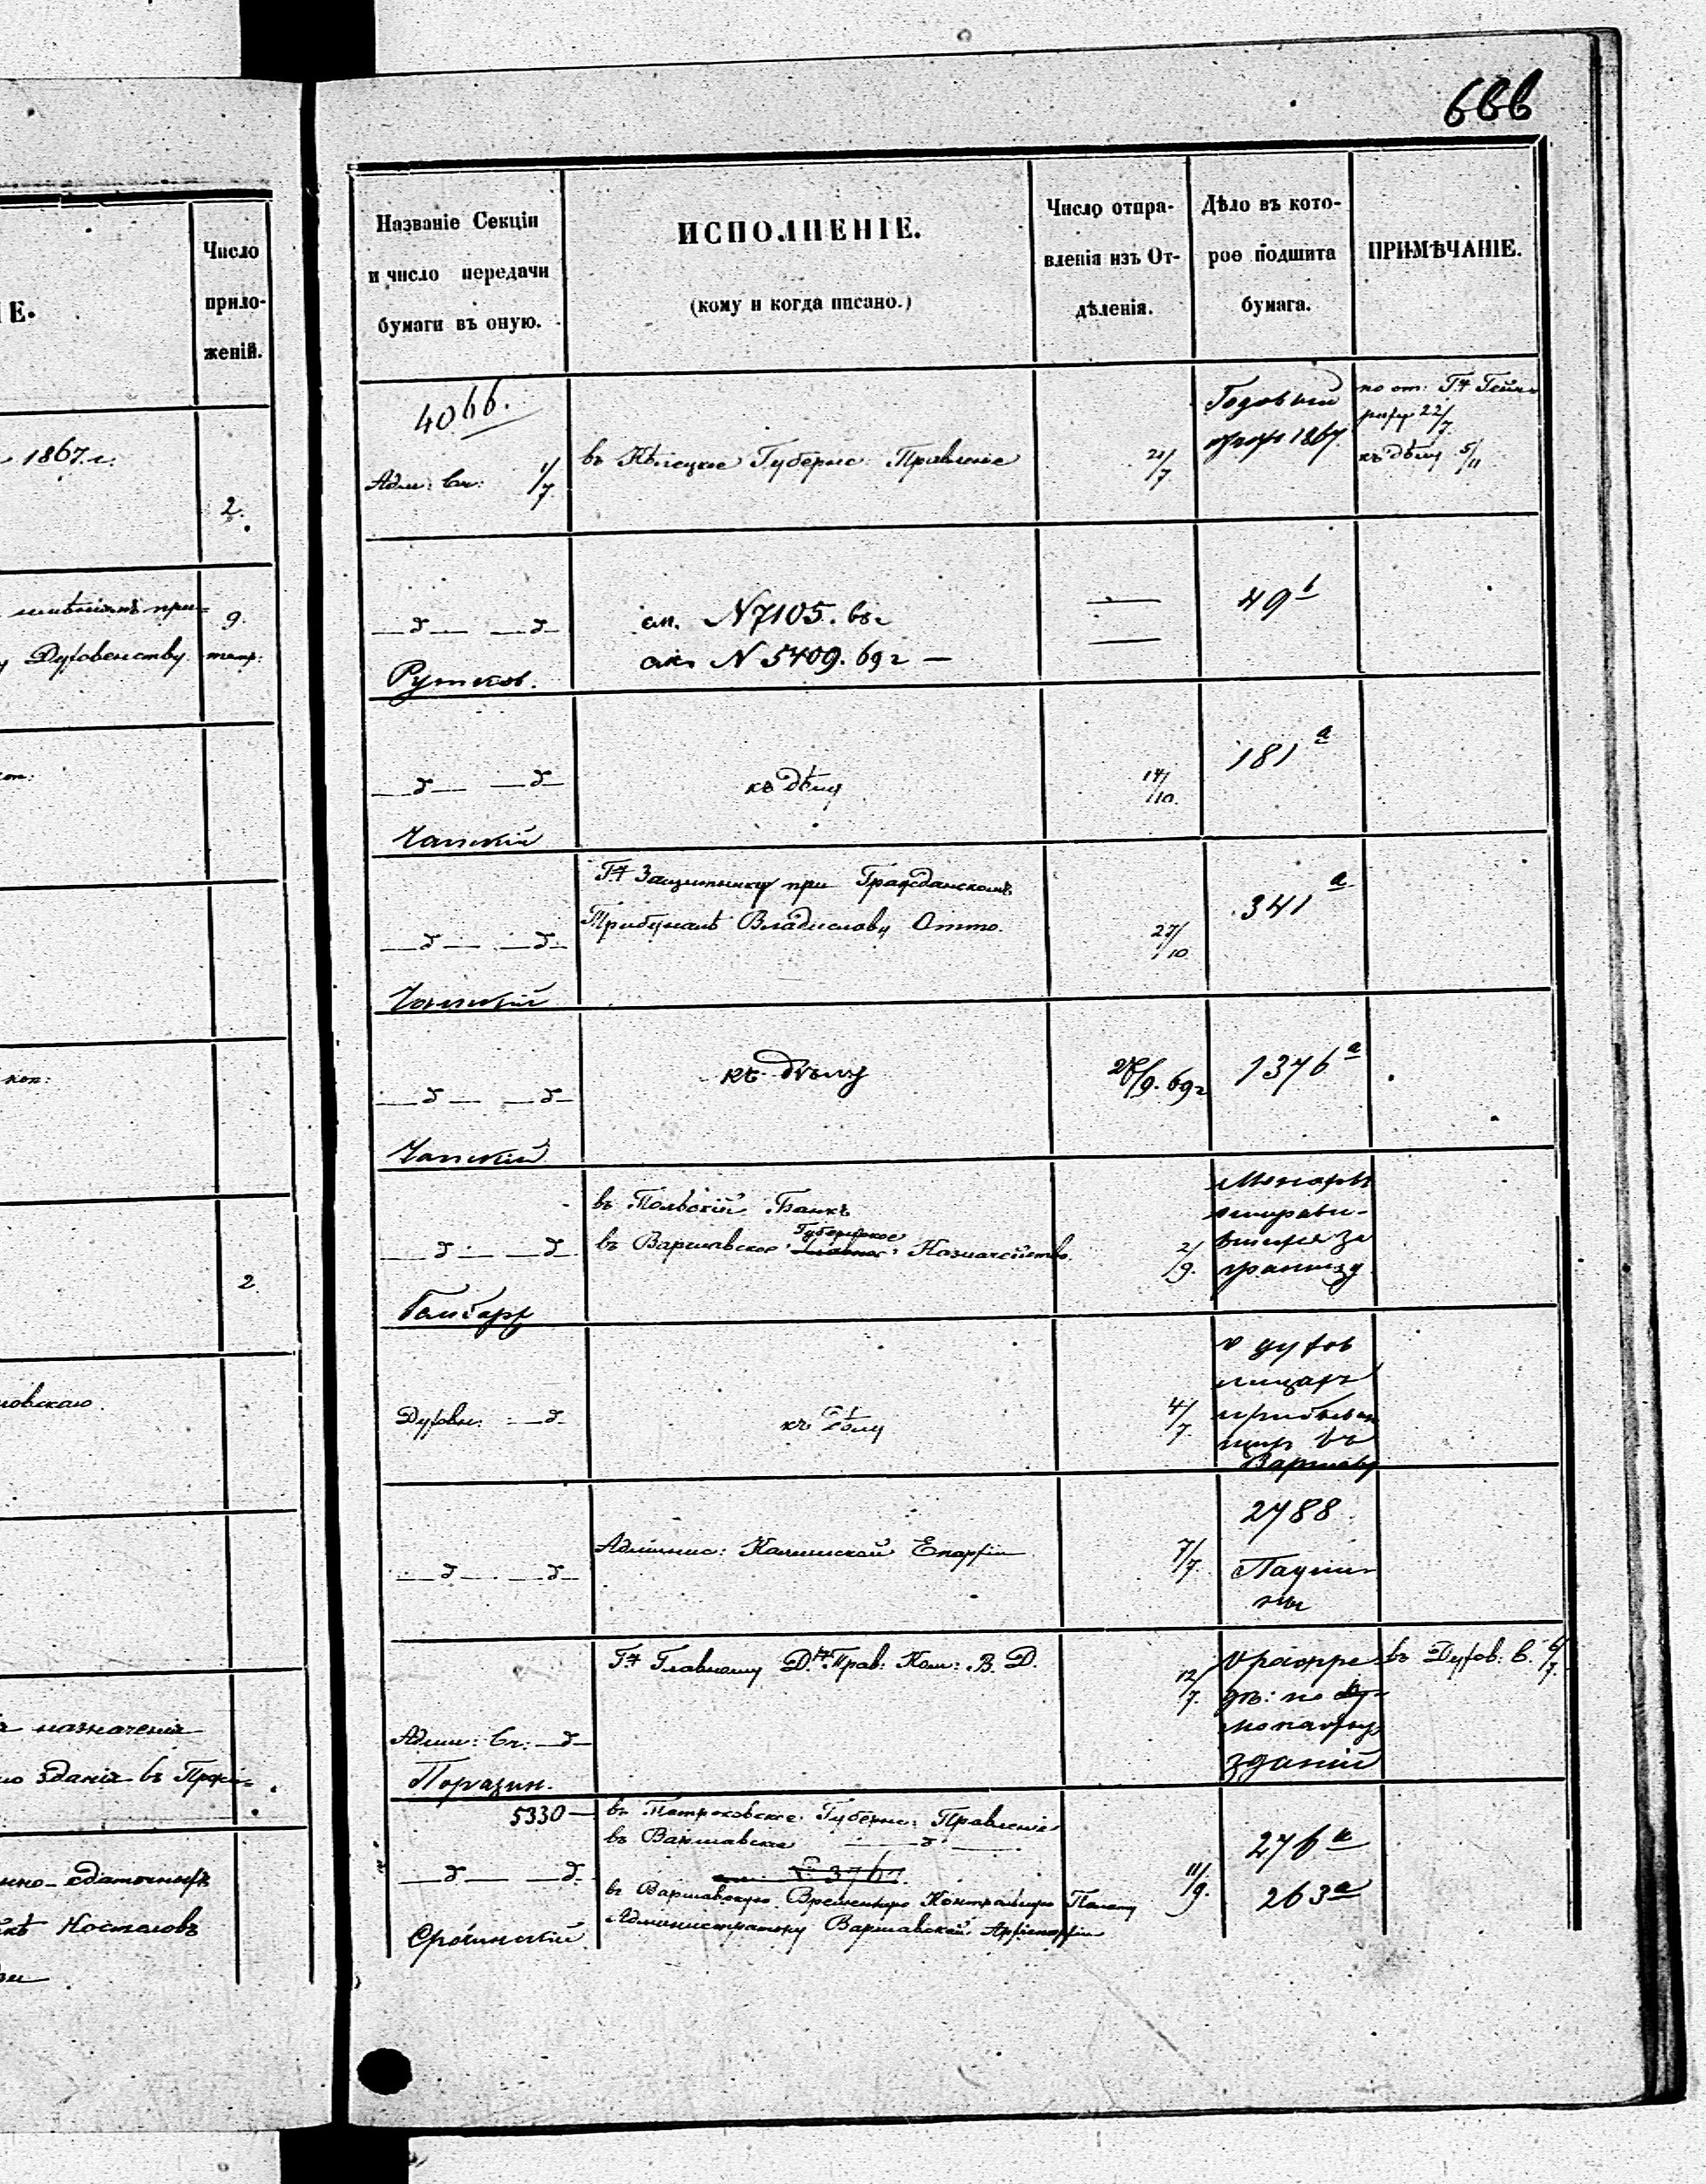 666
Е.
Число
прило-
женій.
1867 г.
2.
имѣніямъ при-
9.
Духовенству.
тетр:
кот:
коп:
2
новскаго.
назначенія
зданія въ
Костеловъ
Названіе Секціи
и число передачи
бумаги въ оную.
ИСПОЛНЕНІЕ.
(кому и когда писано.)
Число отпра-
вленія изъ От-
дѣленія.
Дѣло въ кото-
рое подшита
бумага.
ПРИМѢЧАНІЕ.
4066.
Адм: Сп: 1/7
въ Кѣлецкое Губернс: Правленіе
21/7
Годовый
1867.
по от: Гну Гейн-
риху 22/7.
къ дѣлу 5/11
—д— —д—
Рутков.
см. N 7105. 68 г
см. N 5409. 69 г —
49 b
—д— —д—
Чапскій
къ дѣлу
14/10.
181 a
—д— —д—
Чапскій
Гну Защитнику при Гражданскомъ
Трибуналѣ Владиславу Отто.
27/10
341 a
—д— —д—
Чапскій
къ дѣлу
28/9. 69 г
1376 a
—д— —д—
Гамбарх
въ Польскій Банкъ
въ Варшавское Губернское Казначейство
2/9.
Монахи
отправи-
вшіеся за
границу
Духовн: —д—
къ дѣлу
4/7.
о духов
лицахъ
прибываю
щихъ въ
Варшаву
—д— —д—
Админис: Калишской Епархіи
7/7.
2788
Паулин-
ны
Адми: Сп: —д—
Поразин.
Гну Главному Дру Прав: Ком: В. Д.
12/7.
о распре
дѣ: по
монастыр
зданій
въ Духов: С. 6/7.
5330 —
—д— —д—
Срочинскій
въ Петроковское Губернс: Правленіе
въ Варшавское —д—
въ Варшавскую Временную Контрольную Палату
Администратору Варшавской Архіепархіи
11/9.
276 a
263 a